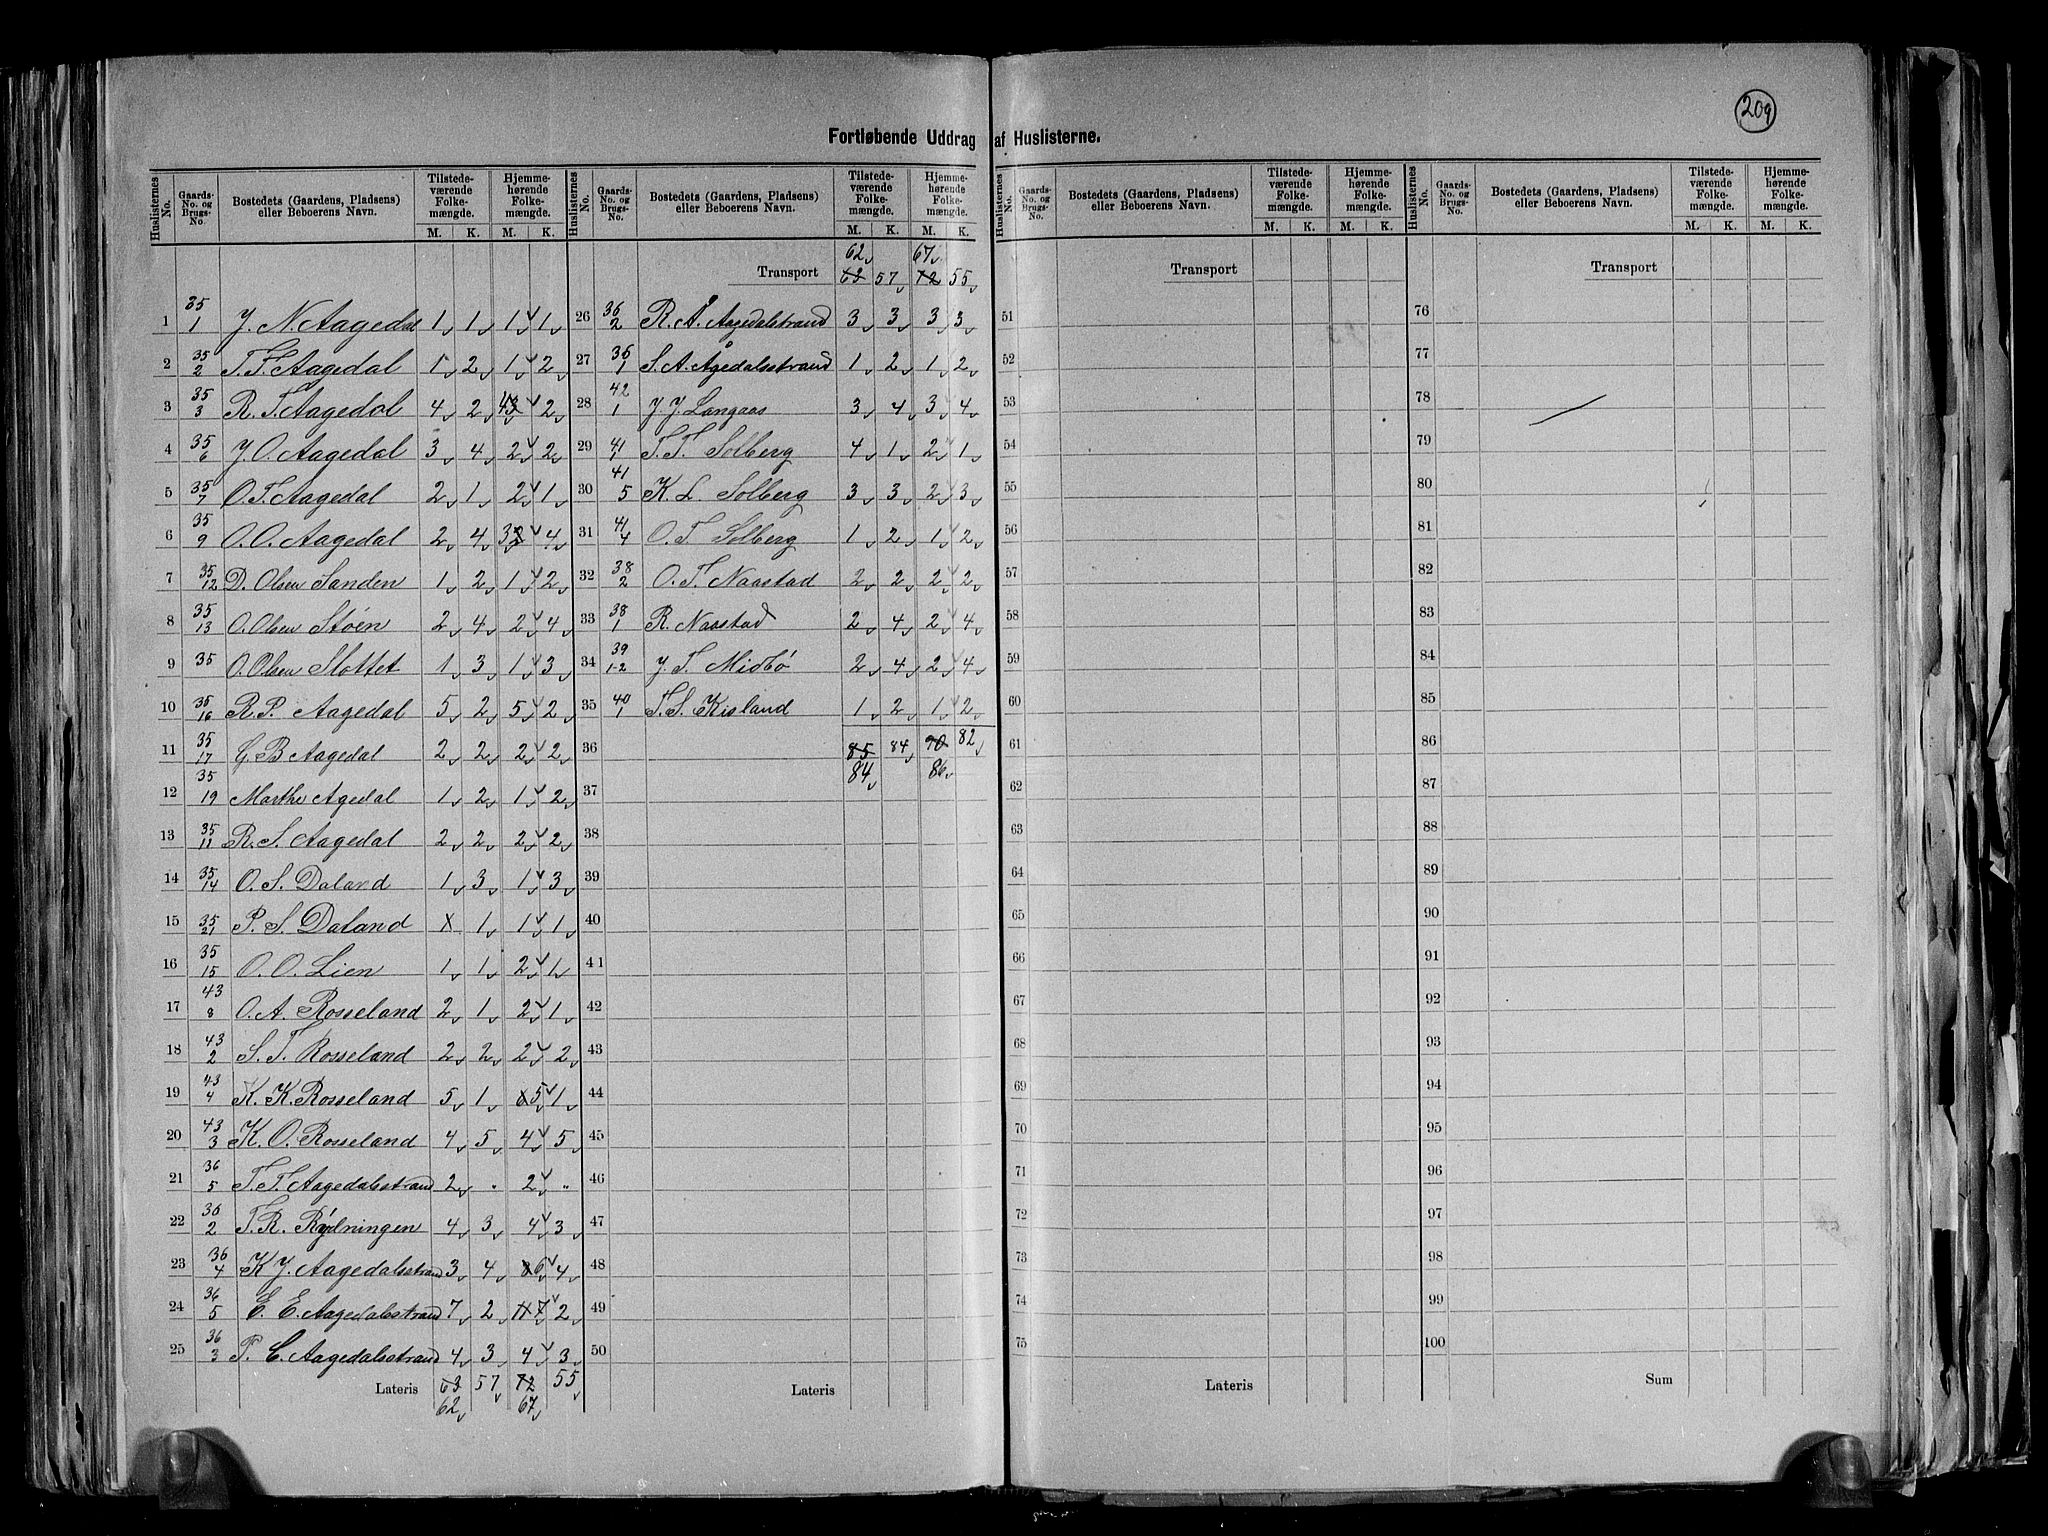 209
Fortløbende Uddrag af Huslisterne.
Huslisternes No. | Gaards-No. og Brugs-No. | Bostedets (Gaardens, Pladsens) eller Beboerens Navn. | Tilstedeværende Folkemængde. M. K. | Hjemmehørende Folkemængde. M. K.
1 | 35/1 | J. N. Aagedal | 1 | 1 | 1 | 1
2 | 35/2 | T. T. Aagedal | 1 | 2 | 1 | 2
3 | 35/3 | R. T. Aagedal | 4 | 2 | 4 3 | 2
4 | 35/6 | J. O. Aagedal | 3 | 4 | 2 | 2
5 | 35/7 | O. T. Aagedal | 2 | 1 | 2 | 1
6 | 35/9 | O. O. Aagedal | 2 | 4 | 3 2 | 4
7 | 35/12 | D. Olsen Sanden | 1 | 2 | 1 | 2
8 | 35/13 | O. Olsen Støen | 2 | 4 | 2 | 4
9 | 35 | O. Olsen Slottet | 1 | 3 | 1 | 3
10 | 35/16 | R. P. Aagedal | 5 | 2 | 5 | 2
11 | 35/17 | G. B Aagedal | 2 | 2 | 2 | 2
12 | 35/19 | Marthe Agedal | 1 | 2 | 1 | 2
13 | 35/11 | R. S. Aagedal | 2 | 2 | 2 | 2
14 | 35/14 | O. S. Daland | 1 | 3 | 1 | 3
15 | 35/21 | P. S. Daland | x | 1 | 1 | 1
16 | 35/15 | O. O. Lien | 1 | 1 | 2 | 1
17 | 43/8 | O. A. Rosseland | 2 | 1 | 2 | 1
18 | 43/2 | S. T. Rosseland | 2 | 2 | 2 | 2
19 | 43/4 | K. K. Rosseland | 5 | 1 | 6 5 | 1
20 | 43/3 | K. O. Rosseland | 4 | 5 | 4 | 5
21 | 36/5 | T. T. Aagedalsstrand | 2 | " | 2 | "
22 | 36/2 | T. R. Rydningen | 4 | 3 | 4 | 3
23 | 36/4 | K. J. Aagedalsstrand | 3 | 4 | 8 6 | 4
24 | 36/5 | E. E. Aagedalsstrand | 7 | 2 | 11 7 | 2
25 | 36/3 | P. C. Aagedalsstrand | 4 | 3 | 4 | 3
Lateris | 63 | 57 | 72 | 55
62 | 67
Huslisternes No. | Gaards-No. og Brugs-No. | Bostedets (Gaardens, Pladsens) eller Beboerens Navn. | Tilstedeværende Folkemængde. M. K. | Hjemmehørende Folkemængde. M. K.
62 | 67
Transport | 63 | 57 | 72 | 55
26 | 36/2 | R. Å. Aagedalstrand | 3 | 3 | 3 | 3
27 | 36/1 | S. A. Ågedalsstrand | 1 | 2 | 1 | 2
28 | 42/1 | J. J. Langaas | 3 | 4 | 3 | 4
29 | 41/1 | T. T. Solberg | 4 | 1 | 2 | 1
30 | 41/5 | K. L. Solberg | 3 | 3 | 2 | 3
31 | 41/4 | O. T. Solberg | 1 | 2 | 1 | 2
32 | 38/2 | O. T. Naastad | 2 | 2 | 2 | 2
33 | 38/1 | R. Naastad | 2 | 4 | 2 | 4
34 | 39/1-2 | J. T. Midbø | 2 | 4 | 2 | 4
35 | 40/1 | T. S. Kisland | 1 | 2 | 1 | 2
36 | 85 | 84 | 90 | 82
84 | 86
37
38
39
40
41
42
43
44
45
46
47
48
49
50
Lateris
Huslisternes No. | Gaards-No. og Brugs-No. | Bostedets (Gaardens, Pladsens) eller Beboerens Navn. | Tilstedeværende Folkemængde. M. K. | Hjemmehørende Folkemængde. M. K.
Transport
51
52
53
54
55
56
57
58
59
60
61
62
63
64
65
66
67
68
69
70
71
72
73
74
75
Lateris
Huslisternes No. | Gaards-No. og Brugs-No. | Bostedets (Gaardens, Pladsens) eller Beboerens Navn. | Tilstedeværende Folkemængde. M. K. | Hjemmehørende Folkemængde. M. K.
Transport
76
77
78
79
80
81
82
83
84
85
86
87
88
89
90
91
92
93
94
95
96
97
98
99
100
Sum